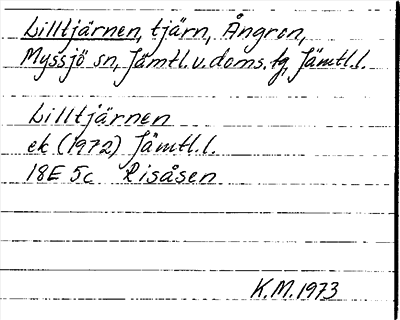 Lilltjärnen, tjärn, Ångron,
Myssjö sn, Jämtl.v.doms.tg, Jämtl.l.
Lilltjärnen
ek (1972) Jämtl.l.
18E 5c Risåsen
K.M.1973